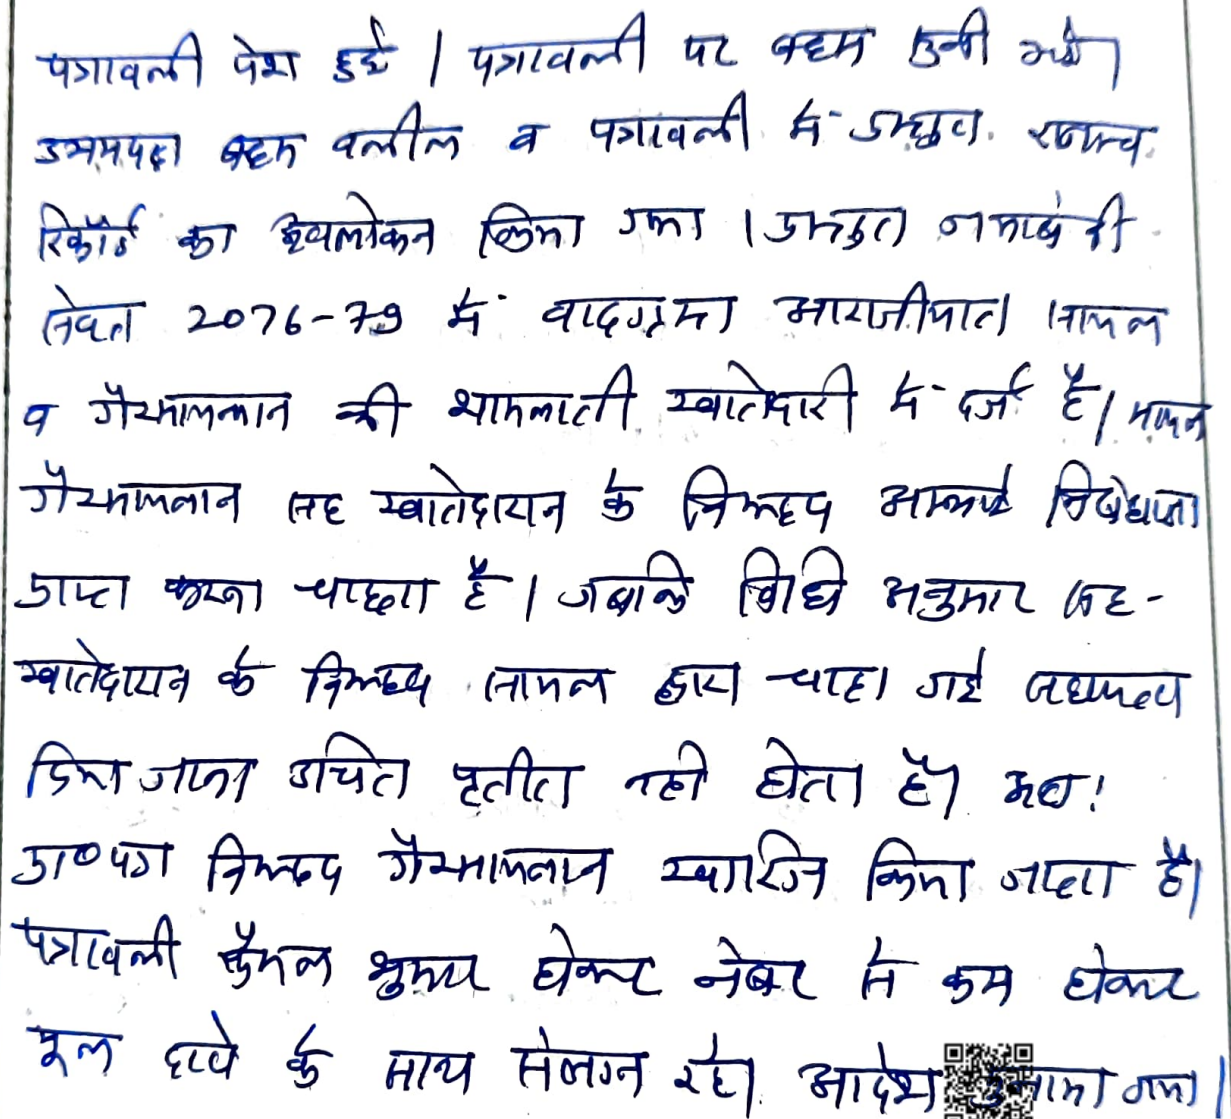 पत्रावली पेश हुई। पत्रावली पर बहस सुनी गई।
उभयपक्ष बहस वकील व पत्रावली में प्रस्तुत राजस्व
रिकॉर्ड का अवलोकन किया गया। प्रस्तुत जमाबंदी
संवत 2076-79 में वादग्रस्त आराजीयात सायल
व गैरसायलान की शामलाती खातेदारी में दर्ज है। सायल
गैरसायलान सह खातेदारान के विरुद्ध अस्थाई निषेधाज्ञा
प्राप्त करना चाहता है। जबकि विधि अनुसार सह-
खातेदारान के विरुद्ध सायल द्वारा चाहा गई
दिया जाना उचित प्रतीत नही होता है। अतः
प्रा०पत्र विरुद्ध गैरसायलान खारिज किया जाता है।
पत्रावली फैसल शुमार होकर नंबर से कम होकर
मूल दावे के साथ संलग्न रहे। आदेश सुनाया गया।